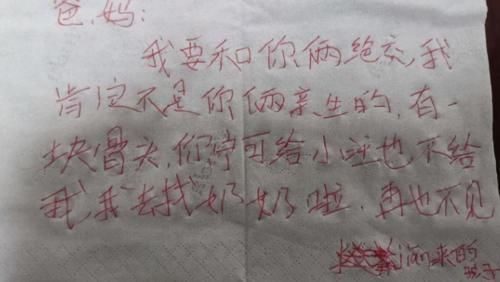 爸、妈：
我要和你俩绝交，我
肯定不是你俩亲生的，有一
块骨头，你宁可给小旺也不给
我，我去找奶奶啦，再也不见
来的
孩子